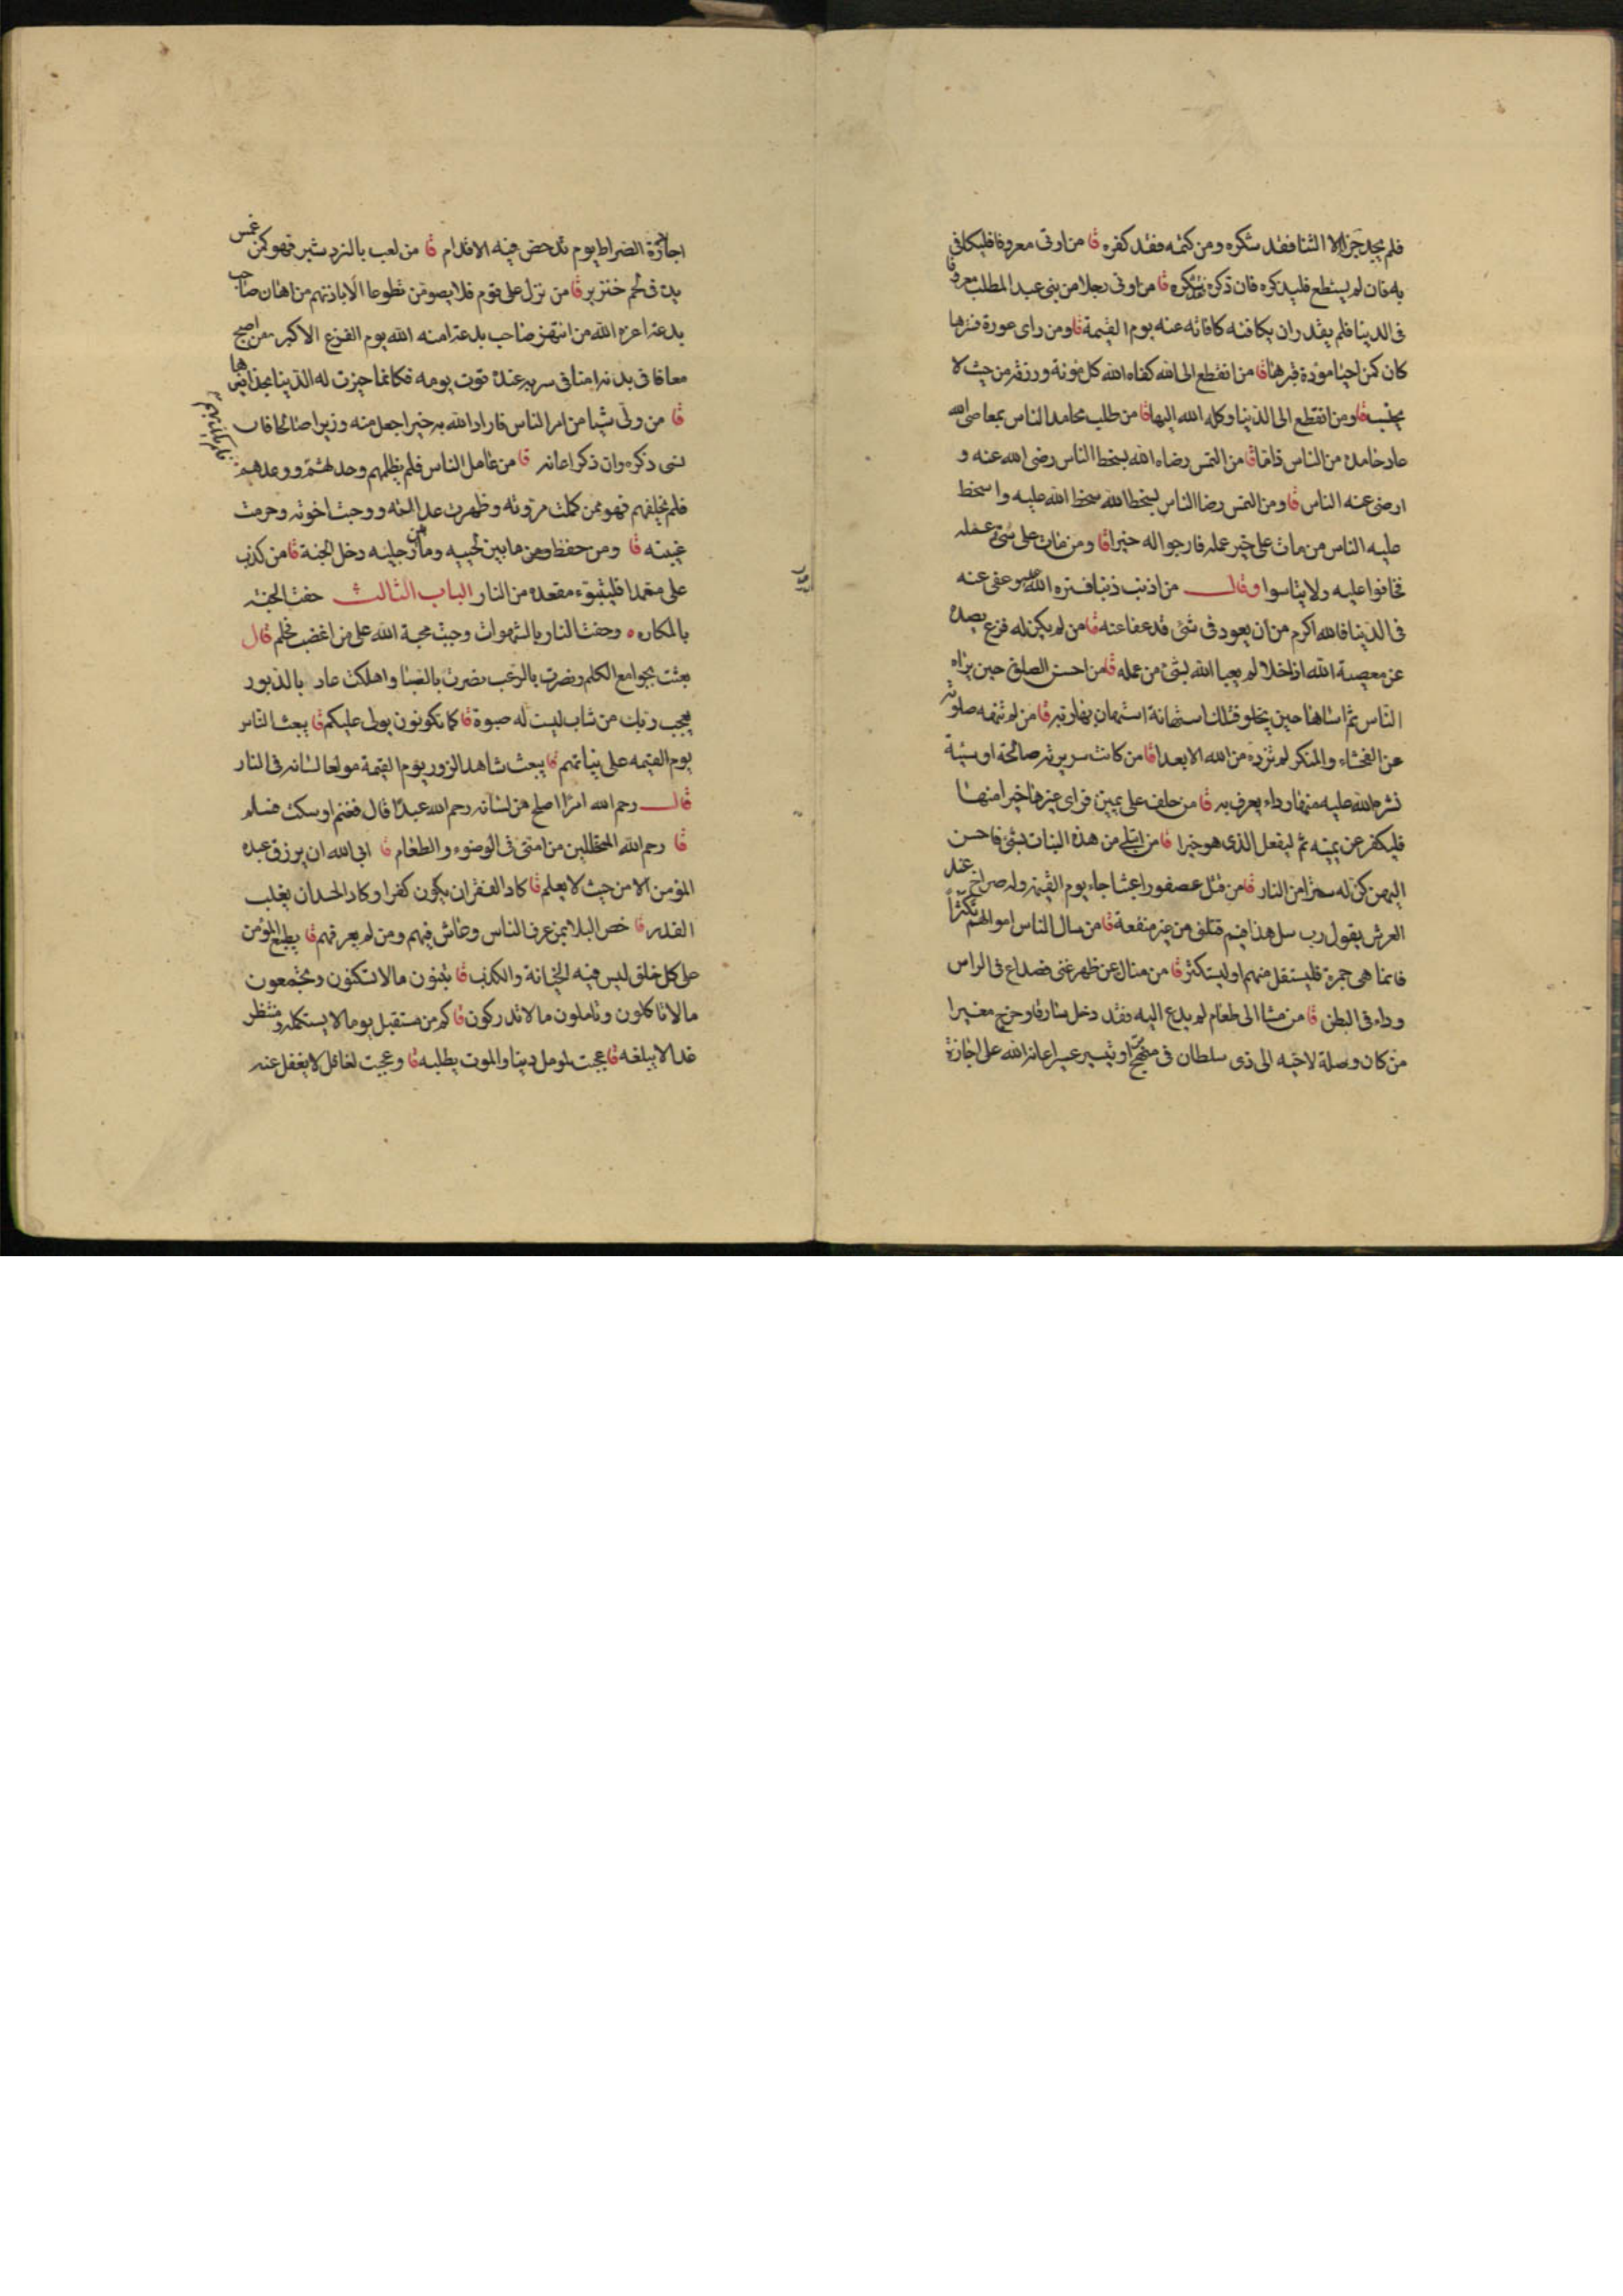 فلم يجد جزا الا الثنا فقد شكره ومن كتمه فقد كفره قا من اوتى معروفا فليكافى
به فان لم يستطع فليذكره فان ذكره شكره قا من اوتى رجلا من بنى عبد المطلب معروفا
فى الدنيا فلم يقدر ان يكافئه كافاته عنه يوم القيمة قا ومن راى عورة فسترها
كان كمن احيا موؤدة قبرها قا من انقطع الى الله كفاه الله كل مؤنة ورزقه من حيث لا
يحتسب قا ومن انقطع الى الدنيا وكله الله اليها قا من طلب محامد الناس بمعاصى الله
عاد حامده من الناس ذاما قا من التمس رضاء الله بسخط الناس رضى الله عنه و
ارضى عنه الناس قا ومن التمس رضا الناس بسخط الله سخط الله عليه واسخط
عليه الناس من مات على خير عمله فارجوا له خيرا قا ومن مات على شئ عمله
فخافوا عليه ولا يتاسوا وقال من اذنب ذنبا فستره الله عليه وعفى عنه
فى الدنيا فالله اكرم من ان يعود فى شئ قد عفا عنه قا من لم يكن له فزع يصده
عن معصية الله اذا خلا لم يعبا الله بشئ من عمله قا من احسن الصلوة حين يراه
الناس ثم اساها حين يخلو فتلك استهانة استهان بها ربه قا من لم تنهه صلوته
عن الفحشاء والمنكر لم تزده من الله الا بعدا قا من كانت سريرته صالحة او سيئة
نشر الله عليه منها رداء يعرف به قا من حلف على يمين فراى غيرها خيرا منها
فليكفر عن يمينه ثم ليفعل الذى هو خيرا قا من ابتلى من هذه البنات بشئ فاحسن
اليهن كن له سترا من النار قا من قتل عصفورا عبثا جاء يوم القيمة وله صراخ عند
العرش يقول رب سل هذا فيم قتلنى من غير منفعة قا من سال الناس اموالهم تكثرا
فانما هى جمرة فليستقل منهم او ليستكثر قا من سال عن ظهر غنى فصداع فى الراس
وداء فى البطن قا من مشا الى طعام لم يدع اليه فقد دخل سارقا وخرج مغيرا
من كان وصلة لاخيه الى ذى سلطان فى او تيسير عسير اعانه الله على اجازة
اجازة الصراط يوم تدحض فيه الاقدام قا من لعب بالنردشير فهو كمن غمس
يده فى لحم خنزير قا من نزل على قوم فلا يصومن تطوعا الا باذنهم من اهان صاحب
بدعة اعزه الله من انتهر صاحب بدعة امنه الله يوم الفزع الاكبر من اصبح
معافا فى بدنه امنا فى سربه عنده قوت يومه فكانما حيزت له الدنيا بحذافيرها
قا من ولى شيا من امر الناس فاراد الله به خيرا جعل منه وزيرا صالحا فان
نسى ذكره وان ذكر اعانه قا من عامل الناس فلم يظلمهم وحدثهم ووعدهم
فلم يخلفهم فهو ممن كملت مروته وظهرت عدالته ووجبت اخوته وحرمت
غيبته قا ومن حفظ ما بين لحييه وما بين رجليه دخل الجنة قا من كذب
على متعمدا فليتبوء مقعده من النار الباب الثالث حفت الجنة
بالمكاره وحفت النار بالشهوات وجبت محبة الله على من اغضب فحلم قال
بعثت بجوامع الكلم ونصرت بالرعب نصرت بالصبا واهلكت عاد بالدبور
يعجب ربك من شاب ليست له صبوة قا كما تكونون يولى عليكم قا يبعث الناس
يوم القيمه على نياتهم قا يبعث شاهد الزور يوم القيمة مولعا لسانه فى النار
قال رحم الله امرا اصلح من لسانه رحم الله عبدا قال فغنم او سكت فسلم
قا رحم الله المتخللين من امتى فى الوضوء والطعام قا ابى الله ان يرزق عبده
المؤمن الا من حيث لا يعلم قا كاد الفقر ان يكون كفرا وكاد الحسد ان يغلب
القدر قا خص البلا بمن عرف الناس وعاش فيهم ومن لم يعرفهم قا يطبع المؤمن
على كل خلق ليس فيه الخيانة والكذب قا تبنون مالا تسكنون وتجمعون
مالا تاكلون وتاملون مالا تدركون قا كم من مستقبل يوما لا يستكمله ومنتظر
غدا لا يبلغه قا عجبت لمومل دنيا والموت يطلبه قا وعجبت لغافل لا يغفل عنه